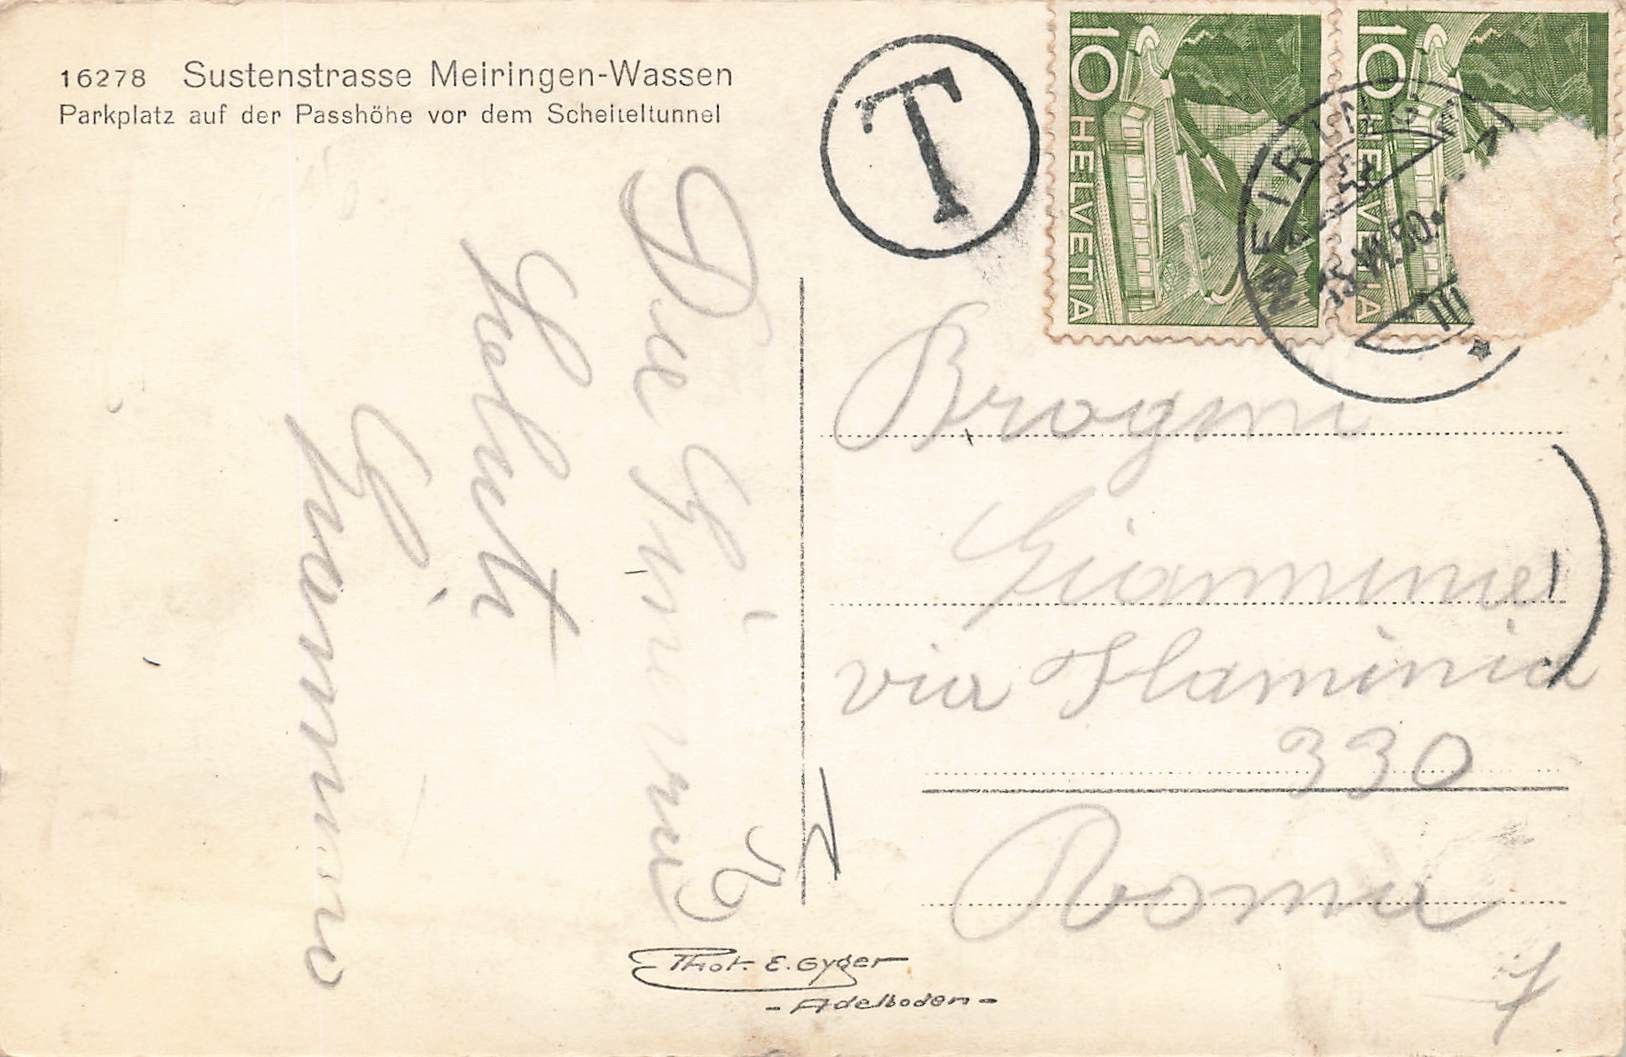 16278 Sustenstrasse Meiringen-Wassen
Parkplatz auf der Passhöhe vor dem Scheiteltunnel
T
10 HELVETIA
10 HELVETIA
MEIRINGEN
15.VI.50.
III
Saluti
Brogini
via Flaminia
330
Roma
Phot. E. Gyger
- Adelboden -